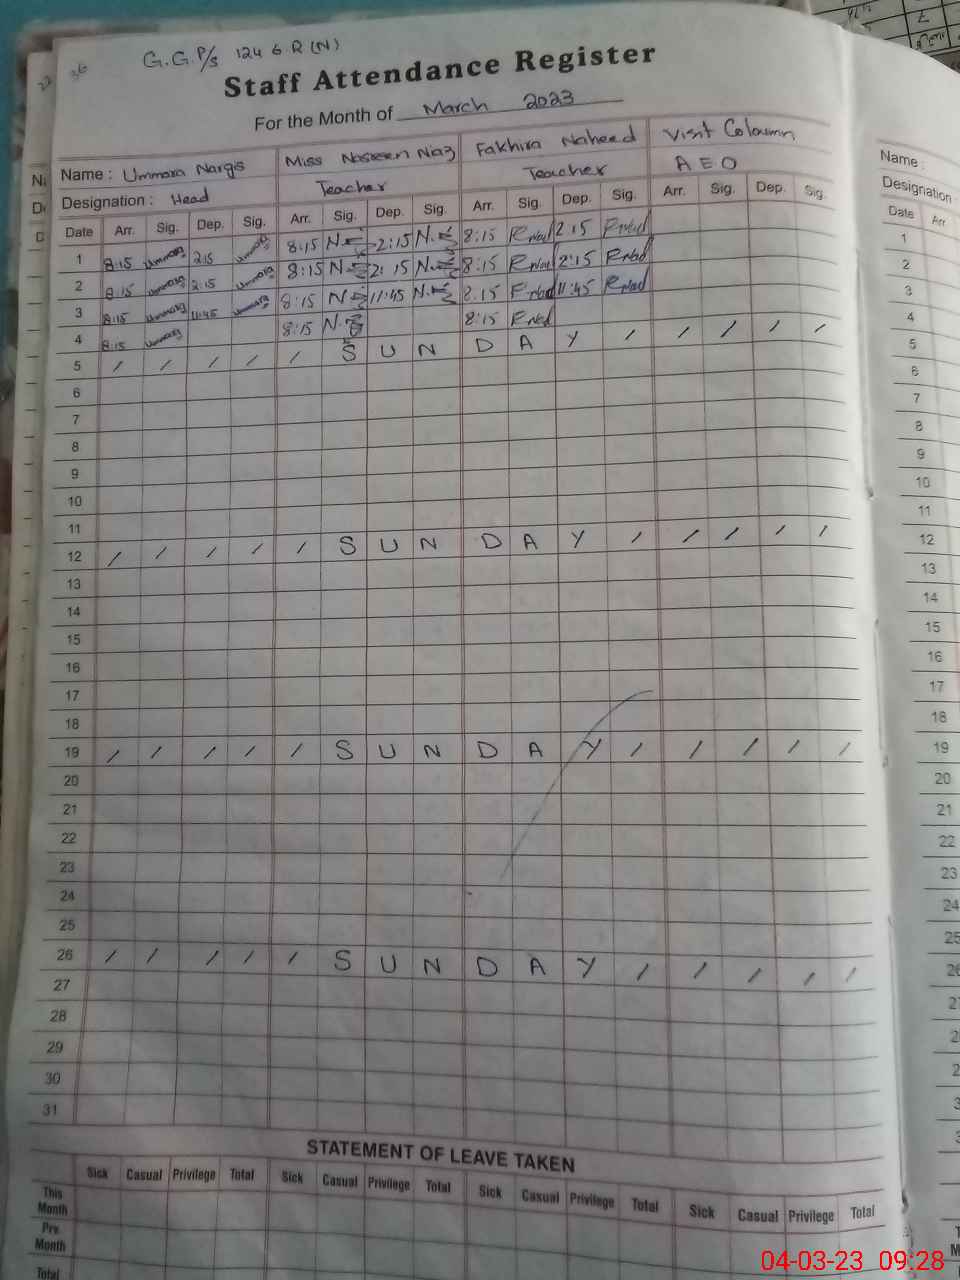 36
G.G.P/s 124 6.R (N)
Staff Attendance Register
For the Month of March 2023
Name : Ummara Nargis Miss Nasreen Naz Fakhira Naheed Visit Coloumn
Designation : Head Teacher Teacher A E O
Date Arr. Sig. Dep. Sig. Arr. Sig. Dep. Sig. Arr. Sig. Dep. Sig. Arr. Sig. Dep. Sig.
1 8:15 Ummara 2:15 Ummara 8:15 2:15 8:15 2:15
2 8:15 Ummara 2:15 Ummara 8:15 2:15 8:15 2:15
3 8:15 Ummara 11:45 Ummara 8:15 11:45 8:15 11:45
4 8:15 Ummara 8:15 8:15
5 / / / / / S U N D A Y / / / / /
6
7
8
9
10
11
12 / / / / / S U N D A Y / / / / /
13
14
15
16
17
18
19 / / / / / S U N D A Y / / / / /
20
21
22
23
24
25
26 / / / / / S U N D A Y / / / / /
27
28
29
30
31
STATEMENT OF LEAVE TAKEN
Sick Casual Privilege Total Sick Casual Privilege Total Sick Casual Privilege Total Sick Casual Privilege Total
This Month
Pre Month
Total
Name :
Designation
Date Arr
1
2
3
4
5
6
7
8
9
10
11
12
13
14
15
16
17
18
19
20
21
22
23
24
25
26
04-03-23 09:28